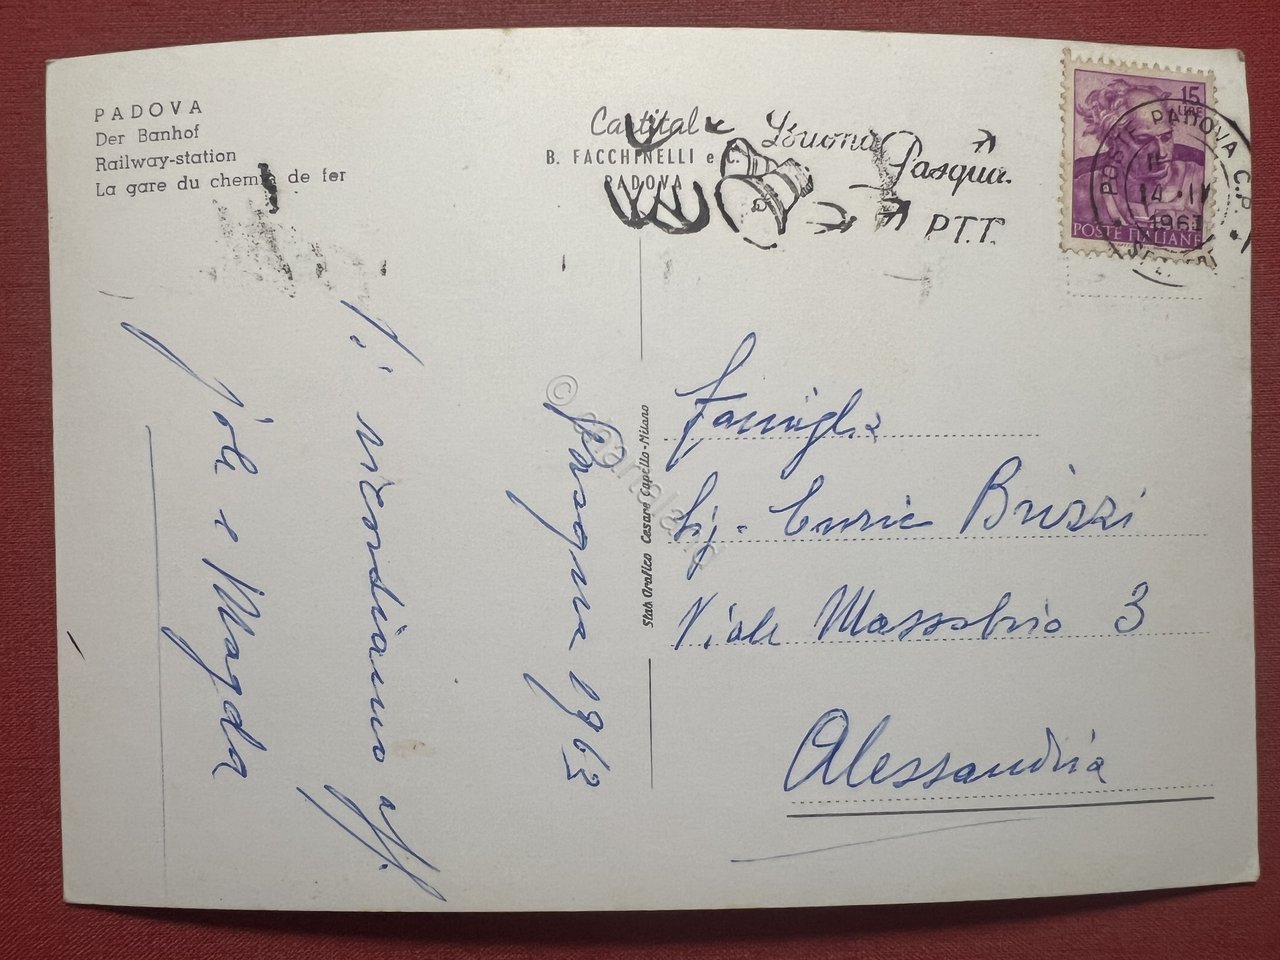 PADOVA
Der Banhof
Railway-station
La gare du chemin de fer
Cartital
B. FACCHINELLI e C.
PADOVA
Buona Pasqua.
P.T.T.
15
LIRE
POSTE ITALIANE
POSTE PADOVA C.P.
14 · IV
1963
Pasqua 1963
Vi ricordiamo aff.
Jole e Magda
Stab. Grafico Cesare Capello-Milano
Famiglia
Sig. Enrico Brizzi
Viale Massobrio 3
Alessandria